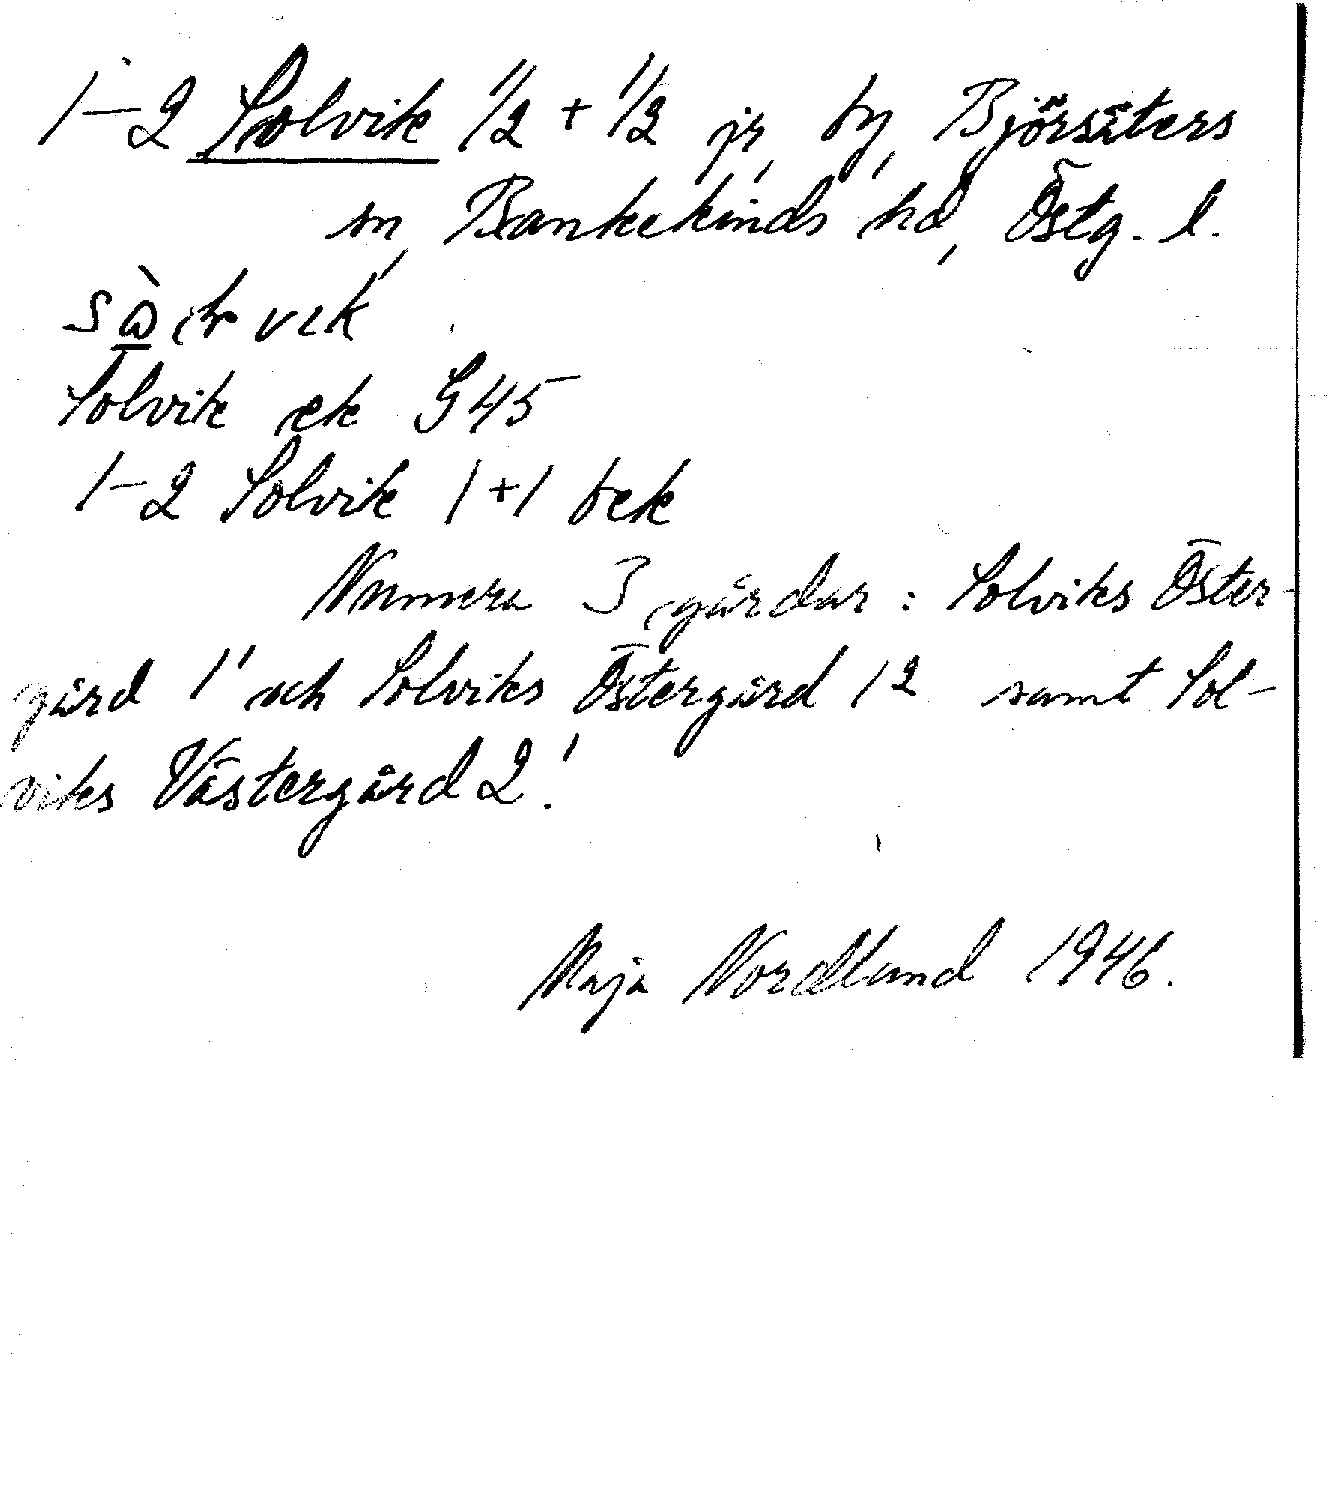 1-2 Solvik 1/2 + 1/2 jr, by, Björsäters
sn, Bankekinds hd, Östg. l.
Solvik ek G45
1-2 Solvik 1+1 bek
Numera 3 gårdar: Solviks Öster-
gård 1¹ och Solviks Östergård 1² samt Sol-
viks Västergård 2¹.
Maja Nordlund 1946.